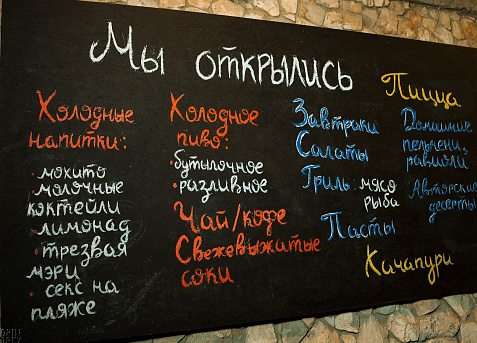 Мы открылись
Холодные
напитки:
· мохито
· молочные
коктейли
· лимонад
· трезвая
мэри
· секс на
пляже
Холодное
пиво:
· бутылочное
· разливное
Чай/кофе
Свежевыжатые
соки
Завтраки
Салаты
Гриль: мясо
рыба
Пасты
Пицца
Домашние
пельмени,
равиоли
Авторские
десерты
Хачапури